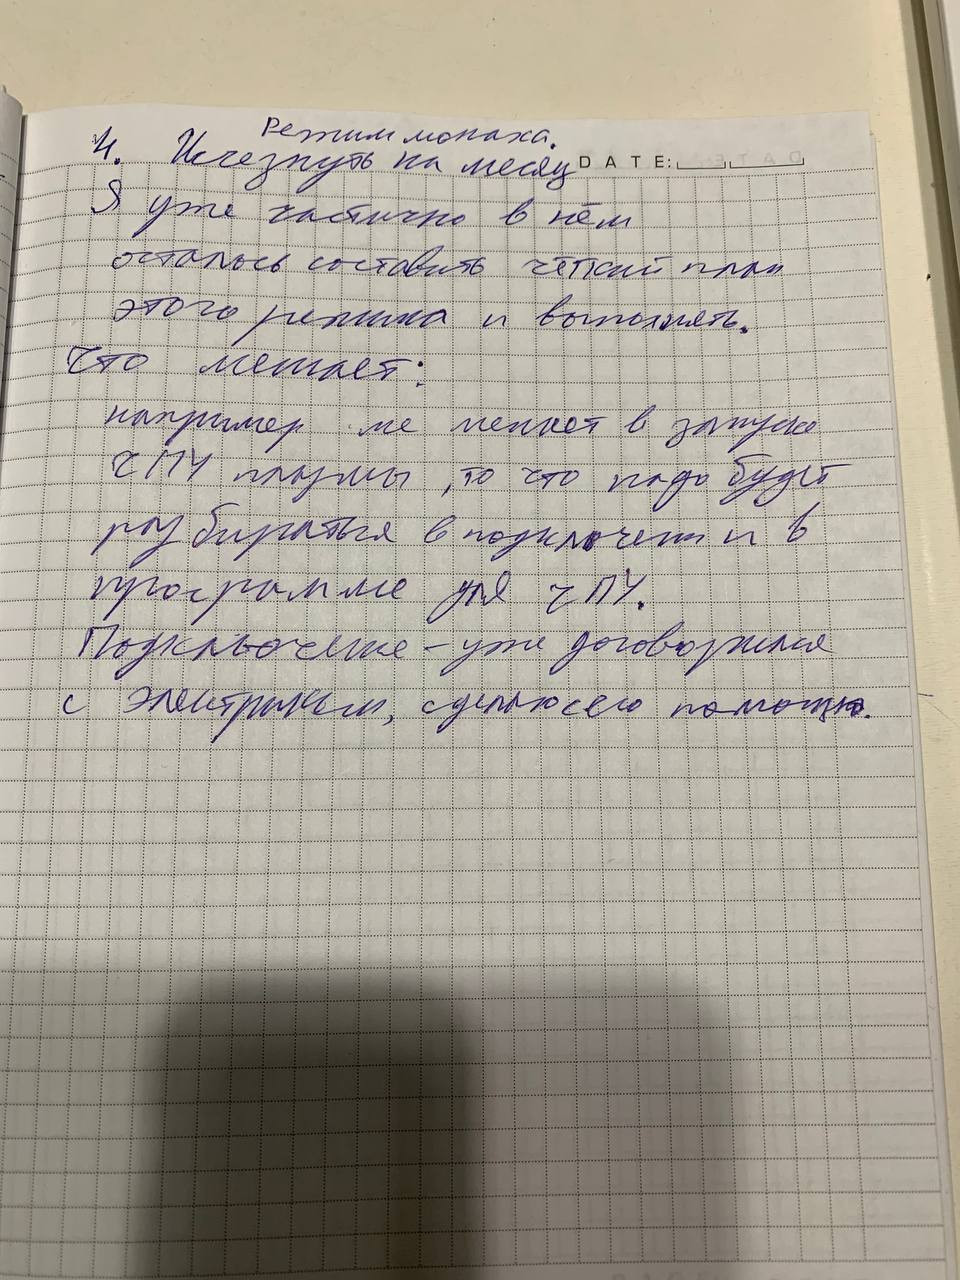 Режим монаха.
4. Исчезнуть на месяц DATE:
Я уже частично в нём
осталось составить чёткий план
этого режима и выполнять.
Что мешает:
например мне мешает в запуске
ЧПУ плазмы, то что надо будет
разбираться в подключении и в
программе для ЧПУ.
Подключение - уже договорился
с электриком, сделаю с его помощью.